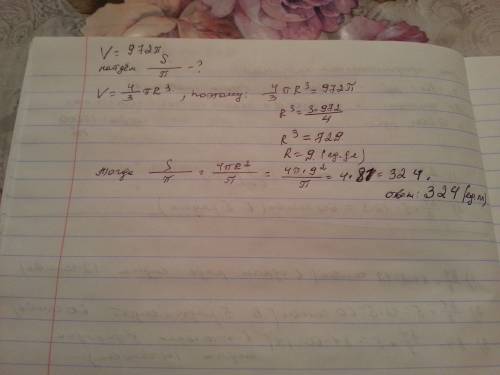 V = 972π
найдём S/π - ?
V = 4/3 πR³, поэтому: 4/3 πR³ = 972π
R³ = 3·972/4
R³ = 729
R = 9 (ед. дл)
тогда S/π = 4πR²/π = 4π·9²/π = 4·81 = 324.
ответ: 324 (ед.пл)